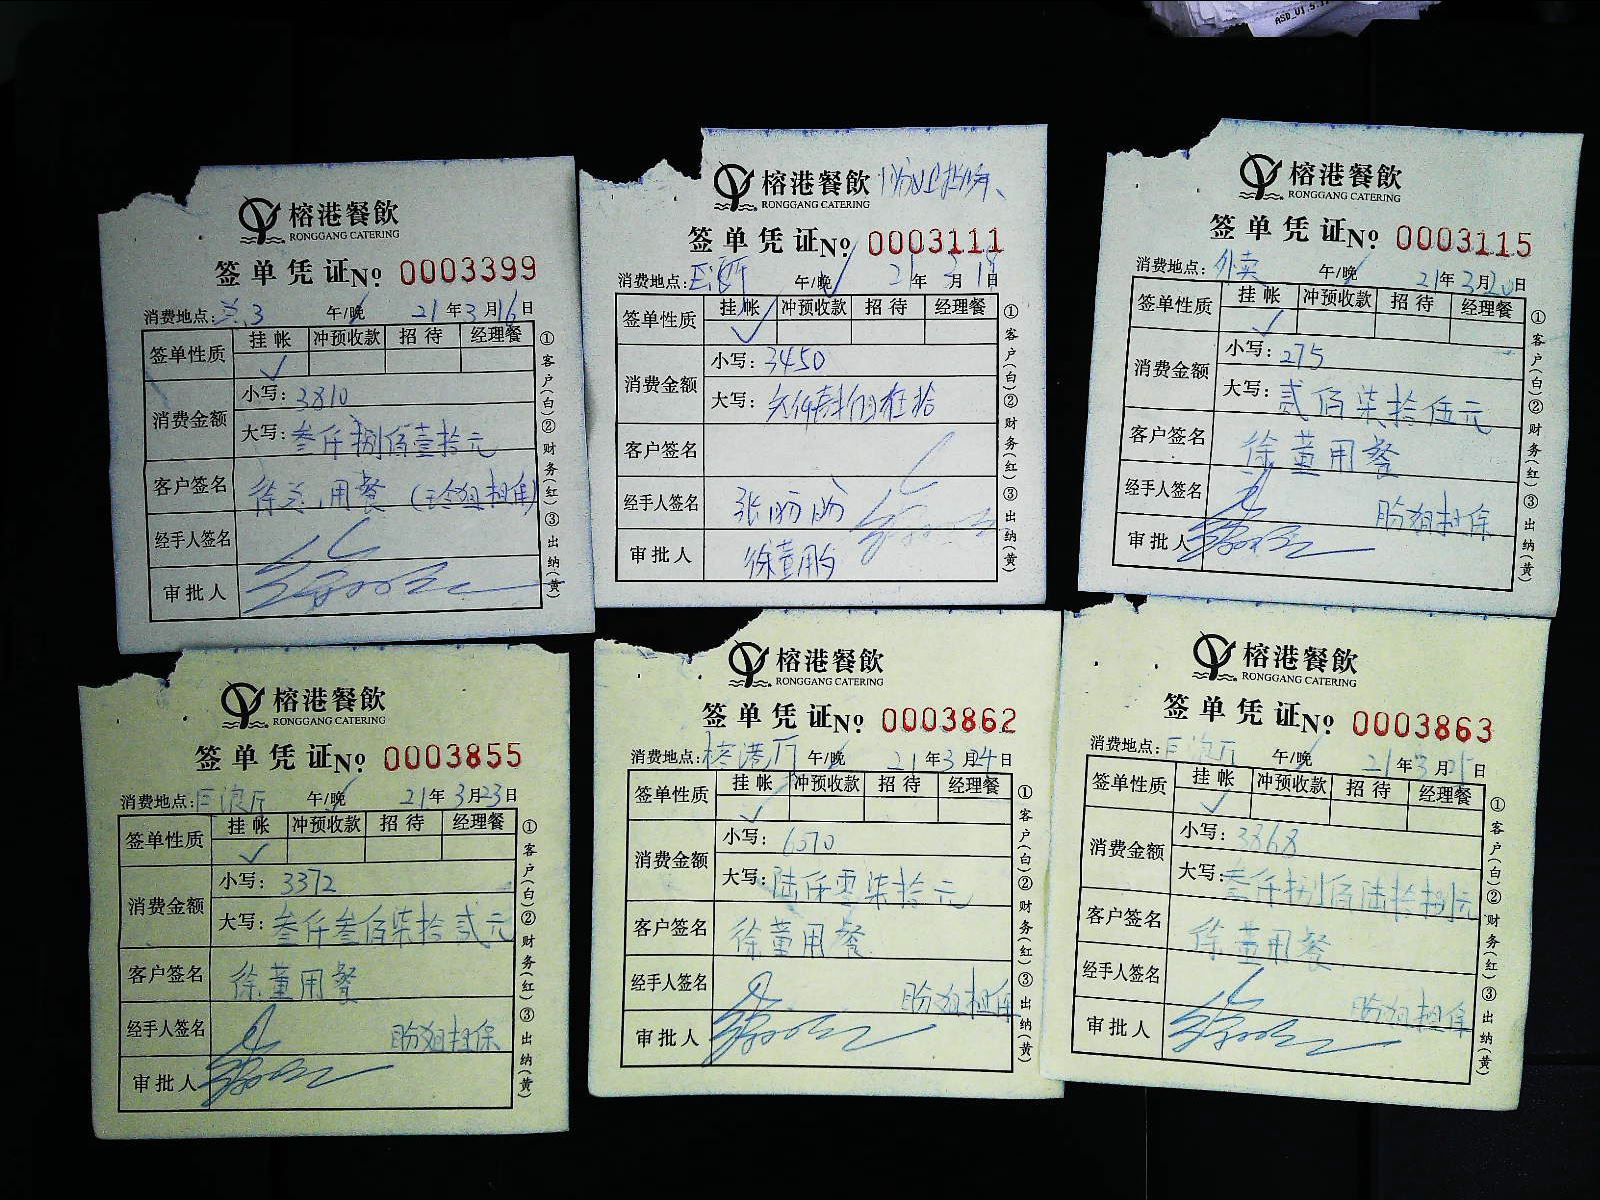 榕港餐飲
RONGGANG CATERING
签单凭证 No 0003399
消费地点: 3 午/晚 21年3月16日
签单性质 挂帐 冲预收款 招待 经理餐
消费金额 小写: 3810
大写: 叁仟捌佰壹拾元
客户签名 徐总用餐 (担保)
经手人签名
审批人
①客户(白)②财务(红)③出纳(黄)
榕港餐飲
RONGGANG CATERING
签单凭证 No 0003111
消费地点: 午/晚 21年3月19日
签单性质 挂帐 冲预收款 招待 经理餐
消费金额 小写: 3450
大写: 叁仟肆佰伍拾
客户签名
经手人签名 张盼盼
审批人 徐董
①客户(白)②财务(红)③出纳(黄)
榕港餐飲
RONGGANG CATERING
签单凭证 No 0003115
消费地点: 外卖 午/晚 21年3月20日
签单性质 挂帐 冲预收款 招待 经理餐
消费金额 小写: 275
大写: 贰佰柒拾伍元
客户签名 徐董用餐
经手人签名 盼姐担保
审批人
①客户(白)②财务(红)③出纳(黄)
榕港餐飲
RONGGANG CATERING
签单凭证 No 0003855
消费地点: 巨浪厅 午/晚 21年3月23日
签单性质 挂帐 冲预收款 招待 经理餐
消费金额 小写: 3372
大写: 叁仟叁佰柒拾贰元
客户签名 徐董用餐
经手人签名 盼姐担保
审批人
①客户(白)②财务(红)③出纳(黄)
榕港餐飲
RONGGANG CATERING
签单凭证 No 0003862
消费地点: 榕港厅 午/晚 21年3月24日
签单性质 挂帐 冲预收款 招待 经理餐
消费金额 小写: 6070
大写: 陆仟零柒拾元
客户签名 徐董用餐
经手人签名 盼姐担保
审批人
①客户(白)②财务(红)③出纳(黄)
榕港餐飲
RONGGANG CATERING
签单凭证 No 0003863
消费地点: 巨浪厅 午/晚 21年3月25日
签单性质 挂帐 冲预收款 招待 经理餐
消费金额 小写: 3868
大写: 叁仟捌佰陆拾捌元
客户签名 徐董用餐
经手人签名 盼姐担保
审批人
①客户(白)②财务(红)③出纳(黄)